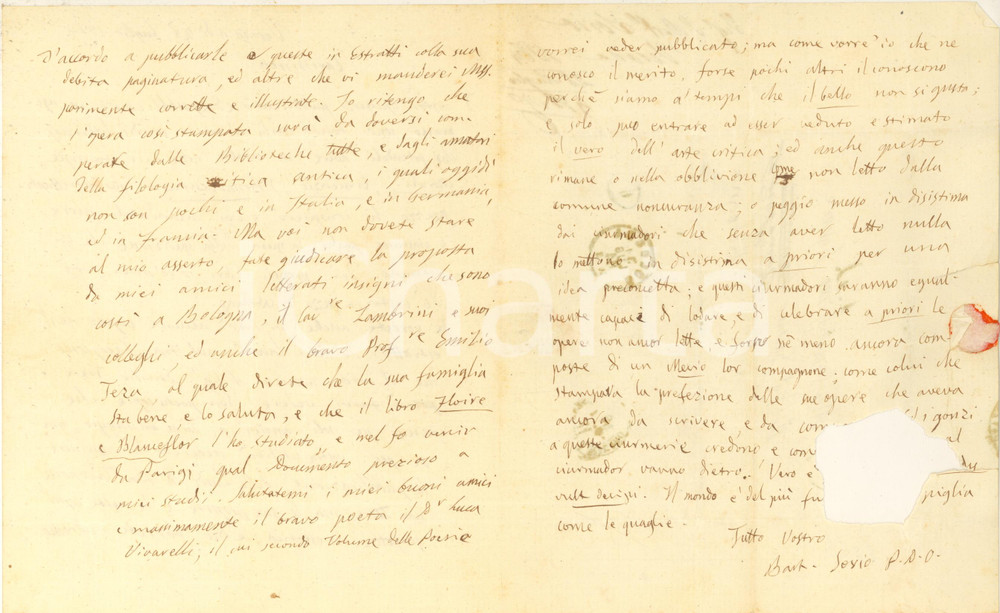 D'accordo a pubblicarle e queste in Estratti colla sua
debita paginatura, ed altre che vi manderei Mss.
parimente corrette e illustrate. Io ritengo che
l'opera così stampata sarà da doversi com-
perate dalle Biblioteche tutte, e dagli amatori
della filologia critica antica, i quali oggidì
non son pochi e in Italia, e in Germania,
ed in Francia. Ma voi non dovete stare
al mio asserto, fate giudicare la proposta
da miei amici letterati insigni che sono
costì a Bologna, il Cav.re Zambrini e suoi
colleghi, ed anche il bravo Prof.re Emilio
Teza, al quale direte che la sua famiglia
sta bene, e lo saluta, e che il libro Floire
e Blanceflor l'ho studiato, e nel fo venir
da Parigi qual documento prezioso a
miei studi. Salutatemi i miei buoni amici
e massimamente il bravo poeta il Dr Luca
Vivarelli, il cui secondo Volume delle Poesie
vorrei veder pubblicato; ma come vorre' io che ne
conosco il merito, forse pochi altri il conoscono
perchè siamo a' tempi che il bello non si gusta;
e solo può entrare ad esser veduto e stimato
il vero dell'arte critica; ed anche questo
rimane o nella obblivione come non letto dalla
comune noncuranza; o peggio messo in disistima
dai ciurmadori che senza aver letto nulla
lo mettono in disistima a priori per una
idea preconcetta; e questi ciurmadori saranno egual-
mente capaci di lodare, e di celebrare a priori le
opere non ancor lette e forse nè meno ancora com-
poste di un Mevio lor compagnone; come colui che
stampava la prefezione delle sue opere che aveva
ancora da scrivere, e da com gonzi
a queste ciurmerie credono e com al
ciurmador, vanno dietro. Vero è
vult decipi. Il mondo è del più piglia
come le quaglie.
Tutto Vostro
Bart. Sorio P.D.O.
Chania